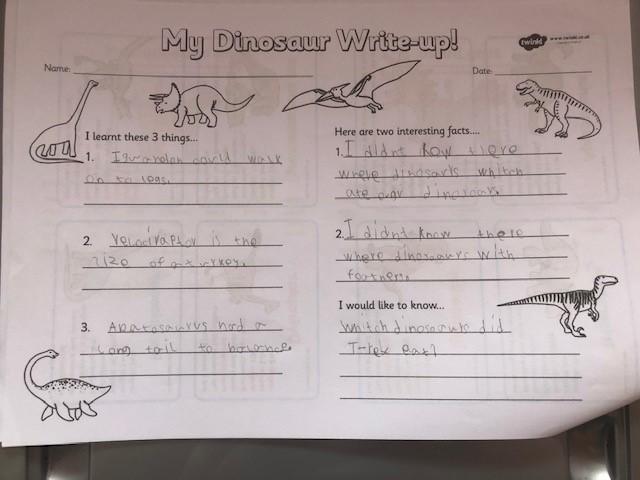 My Dinosaur Write-up!
twinkl www.twinkl.co.uk
Name:
Date:
I learnt these 3 things...
1. Iguanodon could walk
on to legs.
2. Velociraptor is the
size of a turkey.
3. Apatosaurus had a
long tail to balance.
Here are two interesting facts....
1. I didnt know there
where dinosaurs whitch
ate other dinosaurs.
2. I didnt know there
where dinosaurs with
feathers.
I would like to know...
whitch dinosaurs did
T-rex eat?